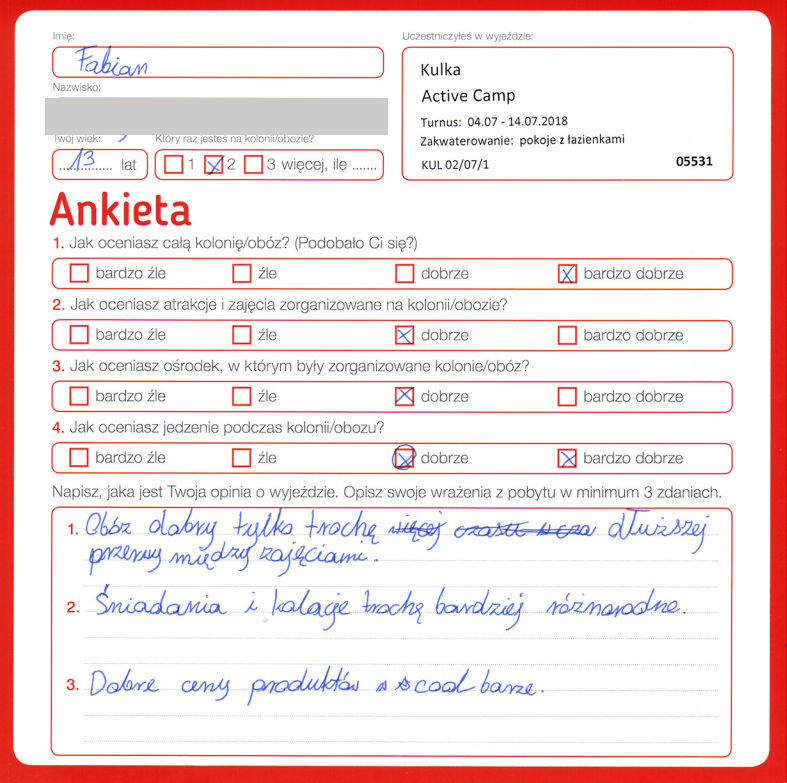 Imię:
Fabian
Nazwisko:
Twój wiek:
Który raz jesteś na kolonii/obozie?
13 lat
1 2 3 więcej, ile .......
Uczestniczyłeś w wyjeździe:
Kulka
Active Camp
Turnus: 04.07 - 14.07.2018
Zakwaterowanie: pokoje z łazienkami
KUL 02/07/1 05531
Ankieta
1. Jak oceniasz całą kolonię/obóz? (Podobało Ci się?)
bardzo źle źle dobrze bardzo dobrze
2. Jak oceniasz atrakcje i zajęcia zorganizowane na kolonii/obozie?
bardzo źle źle dobrze bardzo dobrze
3. Jak oceniasz ośrodek, w którym były zorganizowane kolonie/obóz?
bardzo źle źle dobrze bardzo dobrze
4. Jak oceniasz jedzenie podczas kolonii/obozu?
bardzo źle źle dobrze bardzo dobrze
Napisz, jaka jest Twoja opinia o wyjeździe. Opisz swoje wrażenia z pobytu w minimum 3 zdaniach.
1. Obóz dobry tylko trochę więcej dłuższej
przerwy między zajęciami.
2. Śniadania i kolacje trochę bardziej różnorodne.
3. Dobre ceny produktów cool barze.